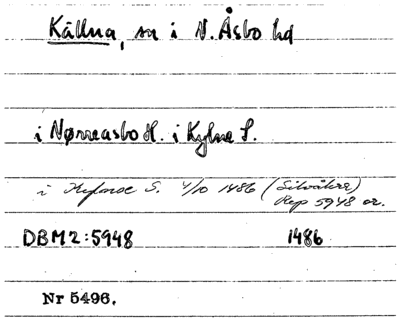 Källna, sn i N. Åsbo hd
i Nørreasbo H. i Kylne S.
i Kylnæ S. 4/10 1486 (Silvåkra)
Rep 5948 or.
DBM2:5948 1486
Nr 5496.